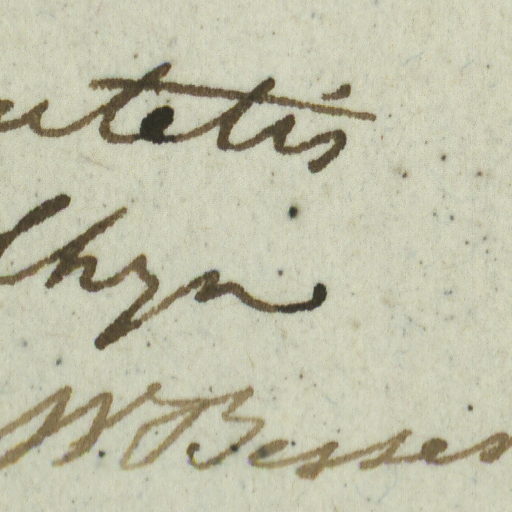 utetis
Chzn
W. Besser